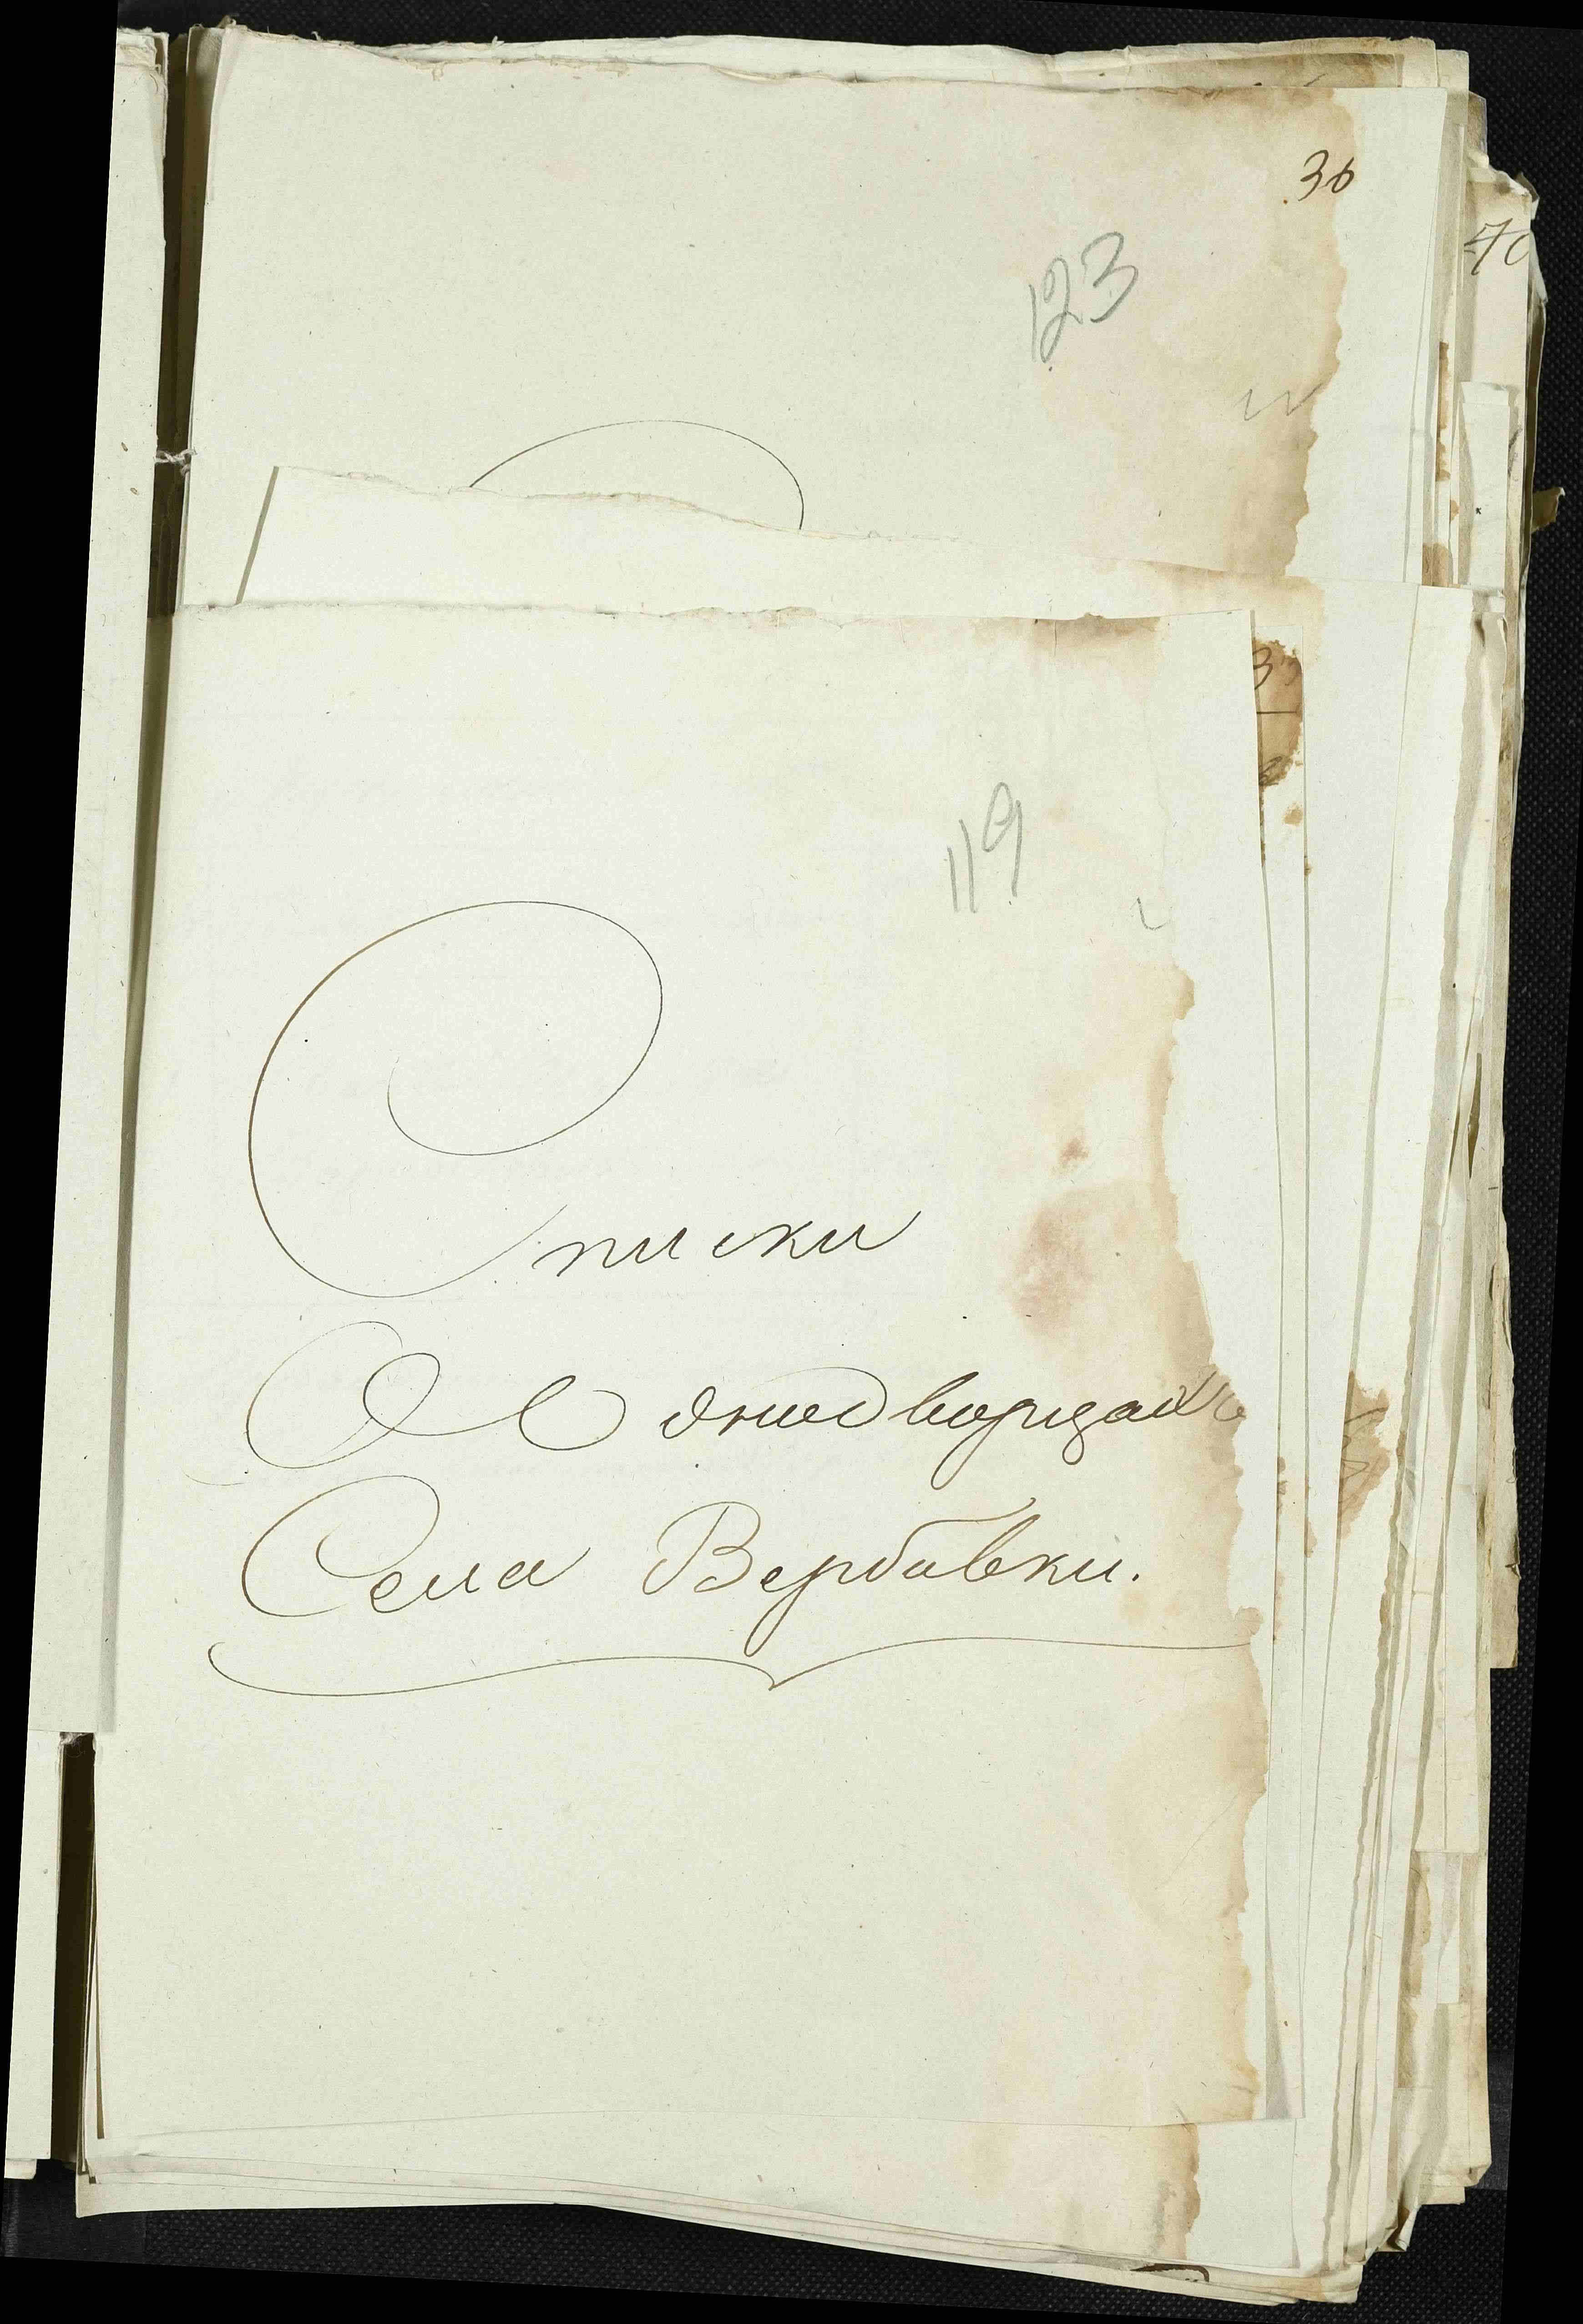 36
40
123
119
Списки
О Однодворцахъ
Села Вербовки.